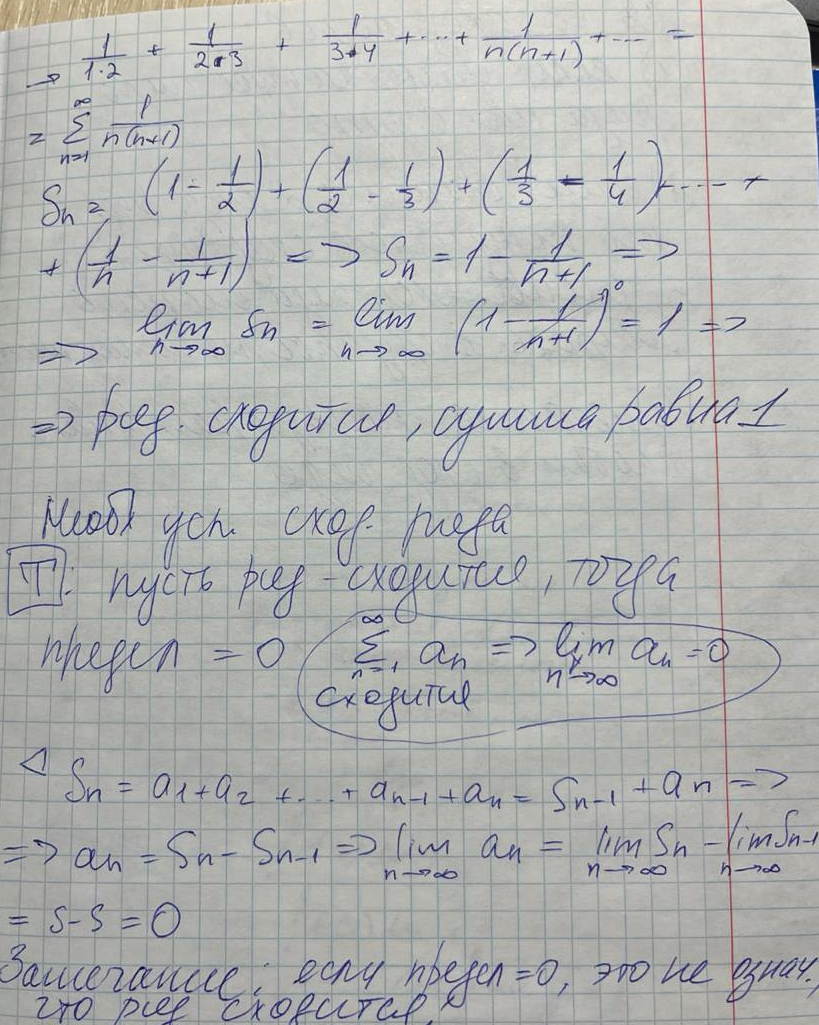 → 1/(1·2) + 1/(2·3) + 1/(3·4) + ... + 1/(n(n+1)) + ... =
= ∑_{n=1}^{∞} 1/(n(n+1))
Sn = (1 - 1/2) + (1/2 - 1/3) + (1/3 - 1/4) + ... +
+ (1/n - 1/(n+1)) => Sn = 1 - 1/(n+1) =>
=> lim_{n→∞} Sn = lim_{n→∞} (1 - 1/(n+1)^{→0}) = 1 =>
=> ряд. сходится, сумма равна 1
Необх усл. сход. ряда
Т: пусть ряд - сходится, тогда
предел = 0 ∑_{n=1}^{∞} an => lim_{n→∞} an = 0
сходится
◁ Sn = a1 + a2 + ... + an-1 + an = Sn-1 + an =>
=> an = Sn - Sn-1 => lim_{n→∞} an = lim_{n→∞} Sn - lim_{n→∞} Sn-1
= S - S = 0
Замечание: если предел = 0, это не означ.,
что ряд сходится.